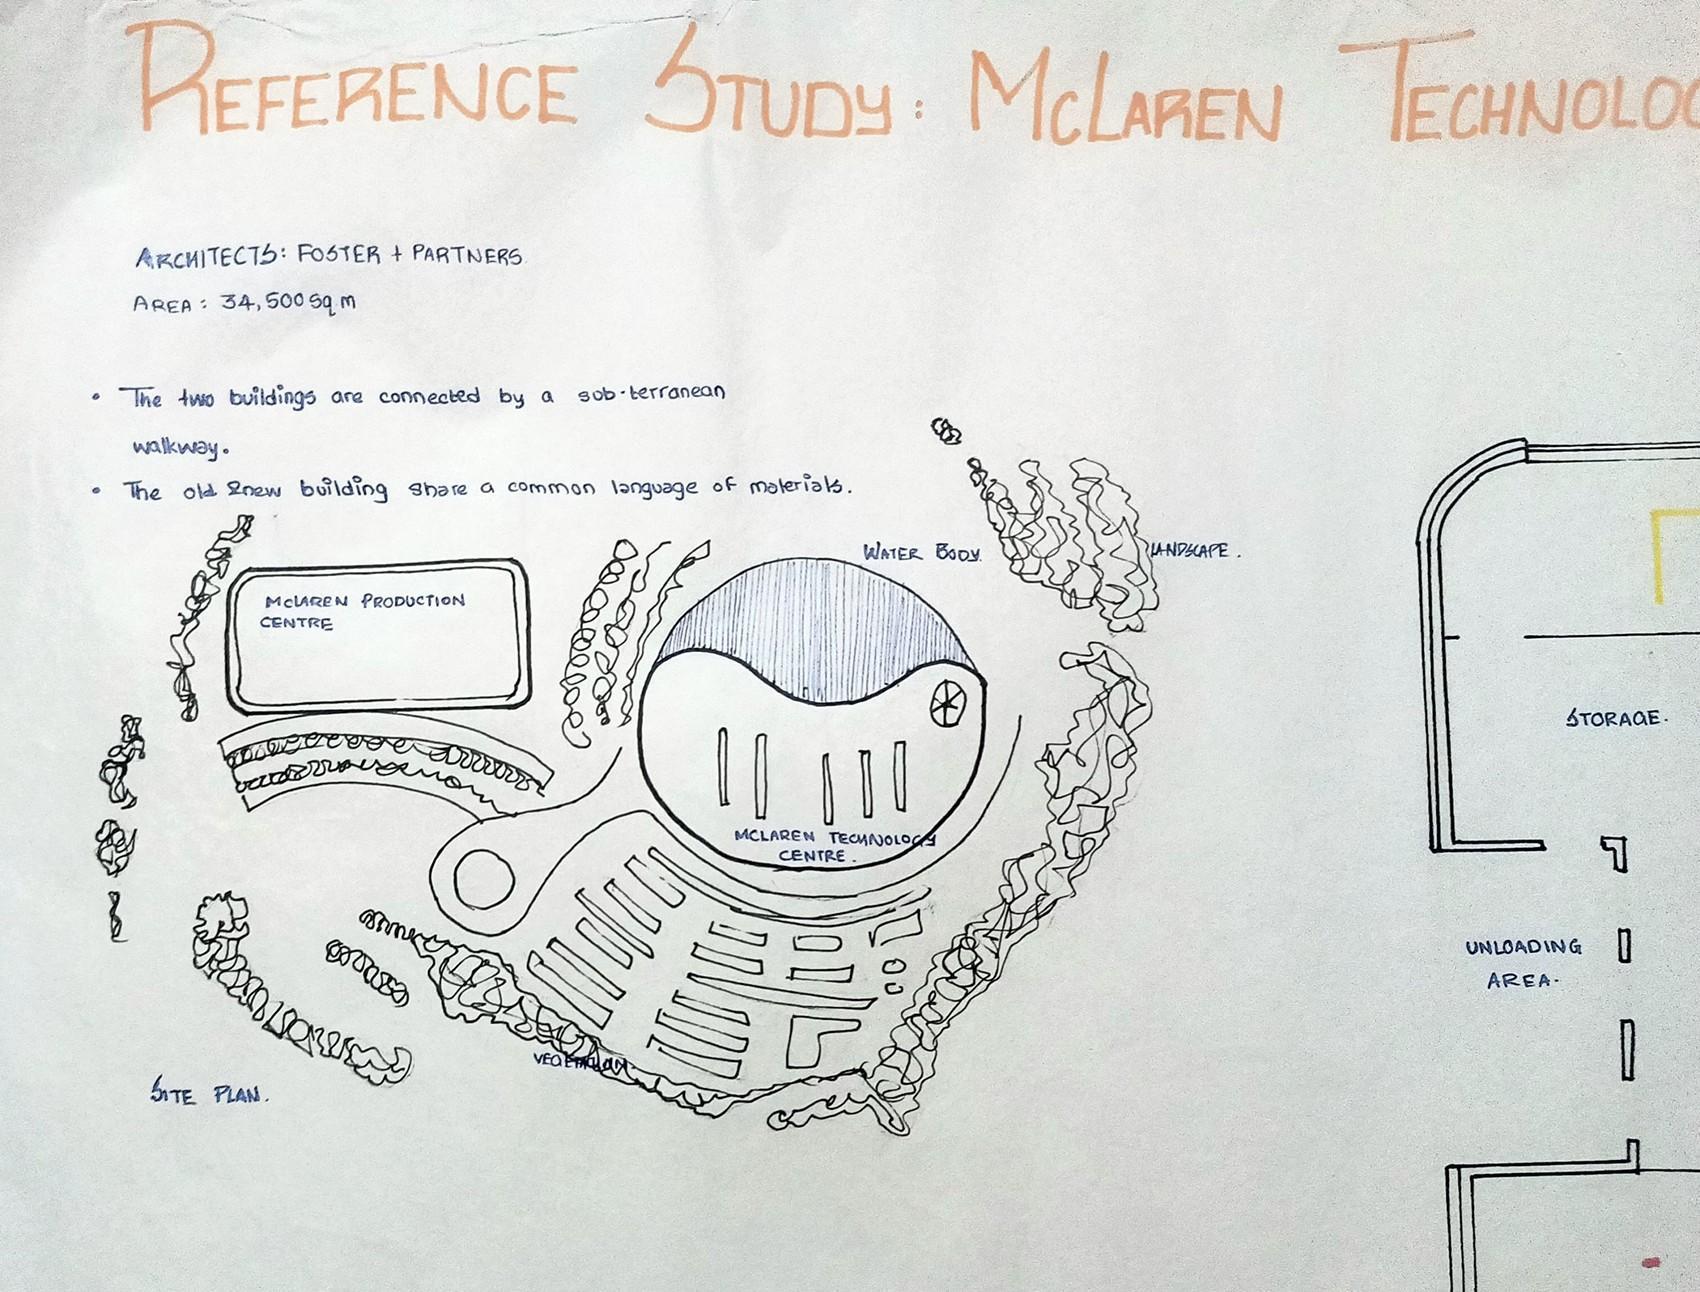 REFERENCE STUDY: MCLAREN TECHNOLOG
ARCHITECTS: FOSTER + PARTNERS
AREA: 34,500 sq m
• The two buildings are connected by a sub-terranean
walkway.
• The old & new building share a common language of materials.
WATER BODY.
LANDSCAPE.
MCLAREN PRODUCTION
CENTRE
STORAGE.
MCLAREN TECHNOLOGY
CENTRE.
UNLOADING
AREA.
SITE PLAN.